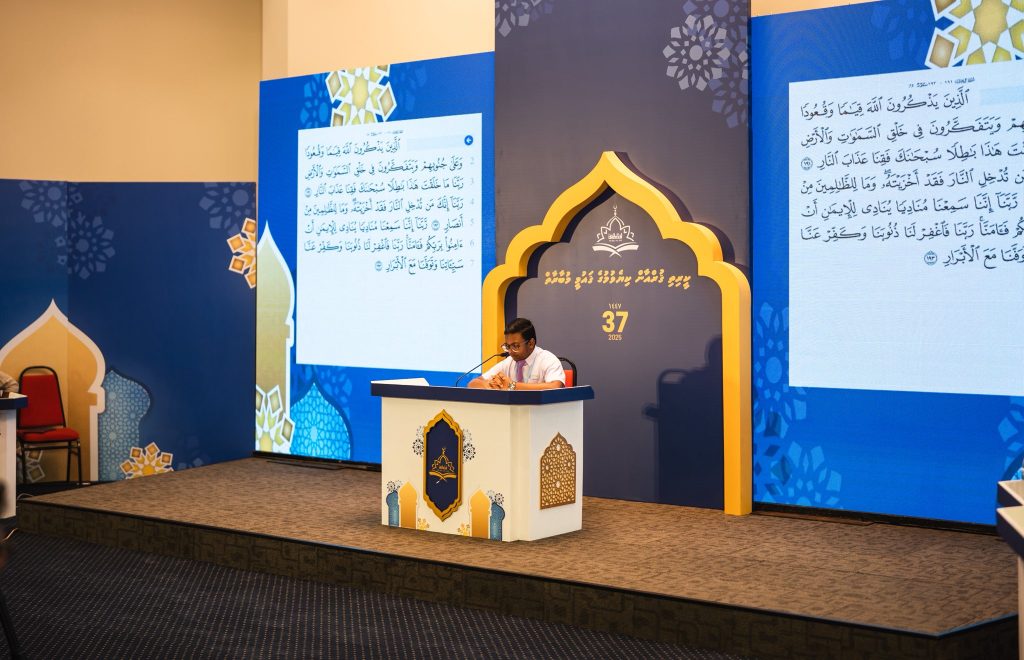 ٱلَّذِينَ يَذْكُرُونَ ٱللَّهَ قِيَٰمًا وَقُعُودًا
وَعَلَىٰ جُنُوبِهِمْ وَيَتَفَكَّرُونَ فِى خَلْقِ ٱلسَّمَٰوَٰتِ وَٱلْأَرْضِ
رَبَّنَا مَا خَلَقْتَ هَٰذَا بَٰطِلًا سُبْحَٰنَكَ فَقِنَا عَذَابَ ٱلنَّارِ ۝١٩١
رَبَّنَآ إِنَّكَ مَن تُدْخِلِ ٱلنَّارَ فَقَدْ أَخْزَيْتَهُۥ ۖ وَمَا لِلظَّٰلِمِينَ مِنْ
أَنصَارٍ ۝١٩٢ رَّبَّنَآ إِنَّنَا سَمِعْنَا مُنَادِيًا يُنَادِى لِلْإِيمَٰنِ أَنْ
ءَامِنُوا۟ بِرَبِّكُمْ فَـَٔامَنَّا ۚ رَبَّنَا فَٱغْفِرْ لَنَا ذُنُوبَنَا وَكَفِّرْ عَنَّا
سَيِّـَٔاتِنَا وَتَوَفَّنَا مَعَ ٱلْأَبْرَارِ ۝١٩٣
ކީރިތި ޤުރުއާން ކިޔެވުމުގެ ޤައުމީ މުބާރާތް
١٤٤٧
37
2025
ٱلَّذِينَ يَذْكُرُونَ ٱللَّهَ قِيَٰمًا وَقُعُودًا
وَيَتَفَكَّرُونَ فِى خَلْقِ ٱلسَّمَٰوَٰتِ وَٱلْأَرْضِ
هَٰذَا بَٰطِلًا سُبْحَٰنَكَ فَقِنَا عَذَابَ ٱلنَّارِ ۝١٩١
تُدْخِلِ ٱلنَّارَ فَقَدْ أَخْزَيْتَهُۥ ۖ وَمَا لِلظَّٰلِمِينَ مِنْ
رَّبَّنَآ إِنَّنَا سَمِعْنَا مُنَادِيًا يُنَادِى لِلْإِيمَٰنِ أَنْ
فَـَٔامَنَّا ۚ رَبَّنَا فَٱغْفِرْ لَنَا ذُنُوبَنَا وَكَفِّرْ عَنَّا
مَعَ ٱلْأَبْرَارِ ۝١٩٣